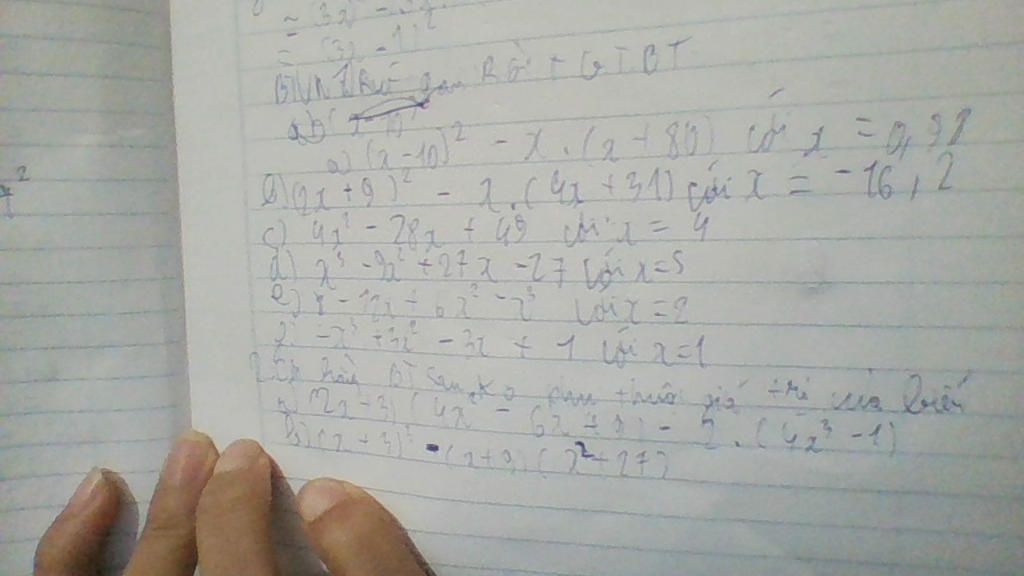 = (3x
= (3x - 1)²
BTVN 1 Rút gọn Rồi + GTBT
a)
a) (x - 10)² - x . (x + 80) với x = 0,98
b) (2x + 9)² - x . (4x + 31) với x = -16,2
c) 4x² - 28x + 49 với x = 4
d) x³ - 9x² + 27x - 27 với x = 5
e) 8 - 12x + 6x² - x³ với x = 2
- x³ + 3x² - 3x + 1 với x = 1
2. BT sau ko phụ thuộc giá trị của biến
a) (2x + 3) (4x² - 6x + 9) - 2 . (4x³ - 1)
b) (x + 3)³ - (x + 9) (x² + 27)